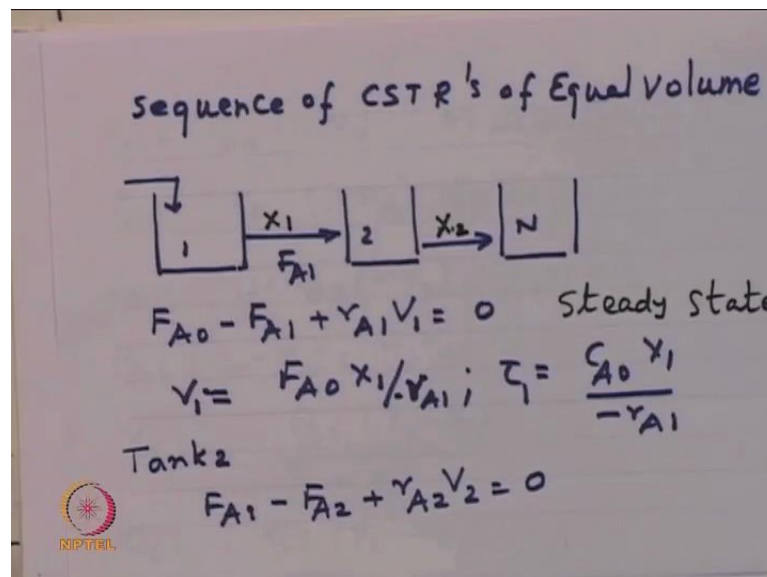 Sequence of CSTR's of Equal Volume
1 X1 FA1 2 X2 N
FA0 - FA1 + rA1 V1 = 0 Steady State
V1 = FA0 X1/-rA1 ; τ1 = CA0 X1 / -rA1
Tank 2
FA1 - FA2 + rA2 V2 = 0
NPTEL